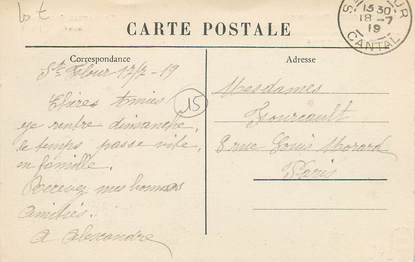 Lot
CARTE POSTALE
ST-FLOUR
13 30
18 - 7
19
CANTAL
Correspondance
Adresse
St Flour 17/7 - 19
Chères Amies
je rentre dimanche,
le temps passe vite
en famille.
Recevez mes bonnes
amitiés.
A Alexandre
15
Mesdames
Fourcault
8 rue Louis Morard
Paris